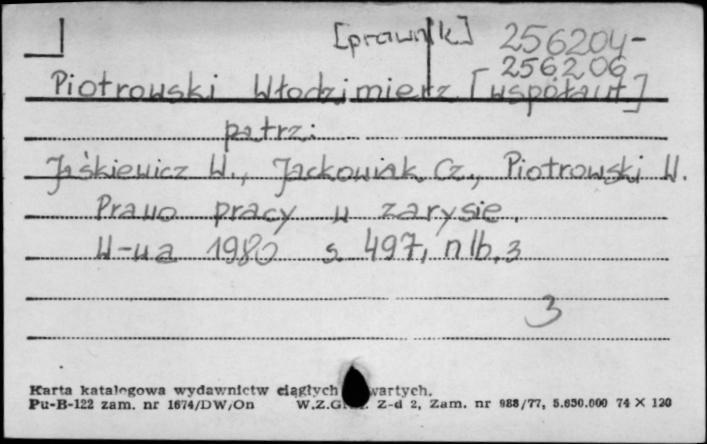 [prawnik] 256204-
256206
Piotrowski Włodzimierz [współaut.]
patrz:
Jaśkiewicz W., Jackowiak Cz., Piotrowski W.
Prawo pracy w zarysie.
W-wa 1980 s. 497, nlb. 3
3
Karta katalogowa wydawnictw ciągłych wartych.
Pu-B-122 zam. nr 1674/DW/On W.Z.G Z-d 2, Zam. nr 988/77, 5.650.000 74 X 120